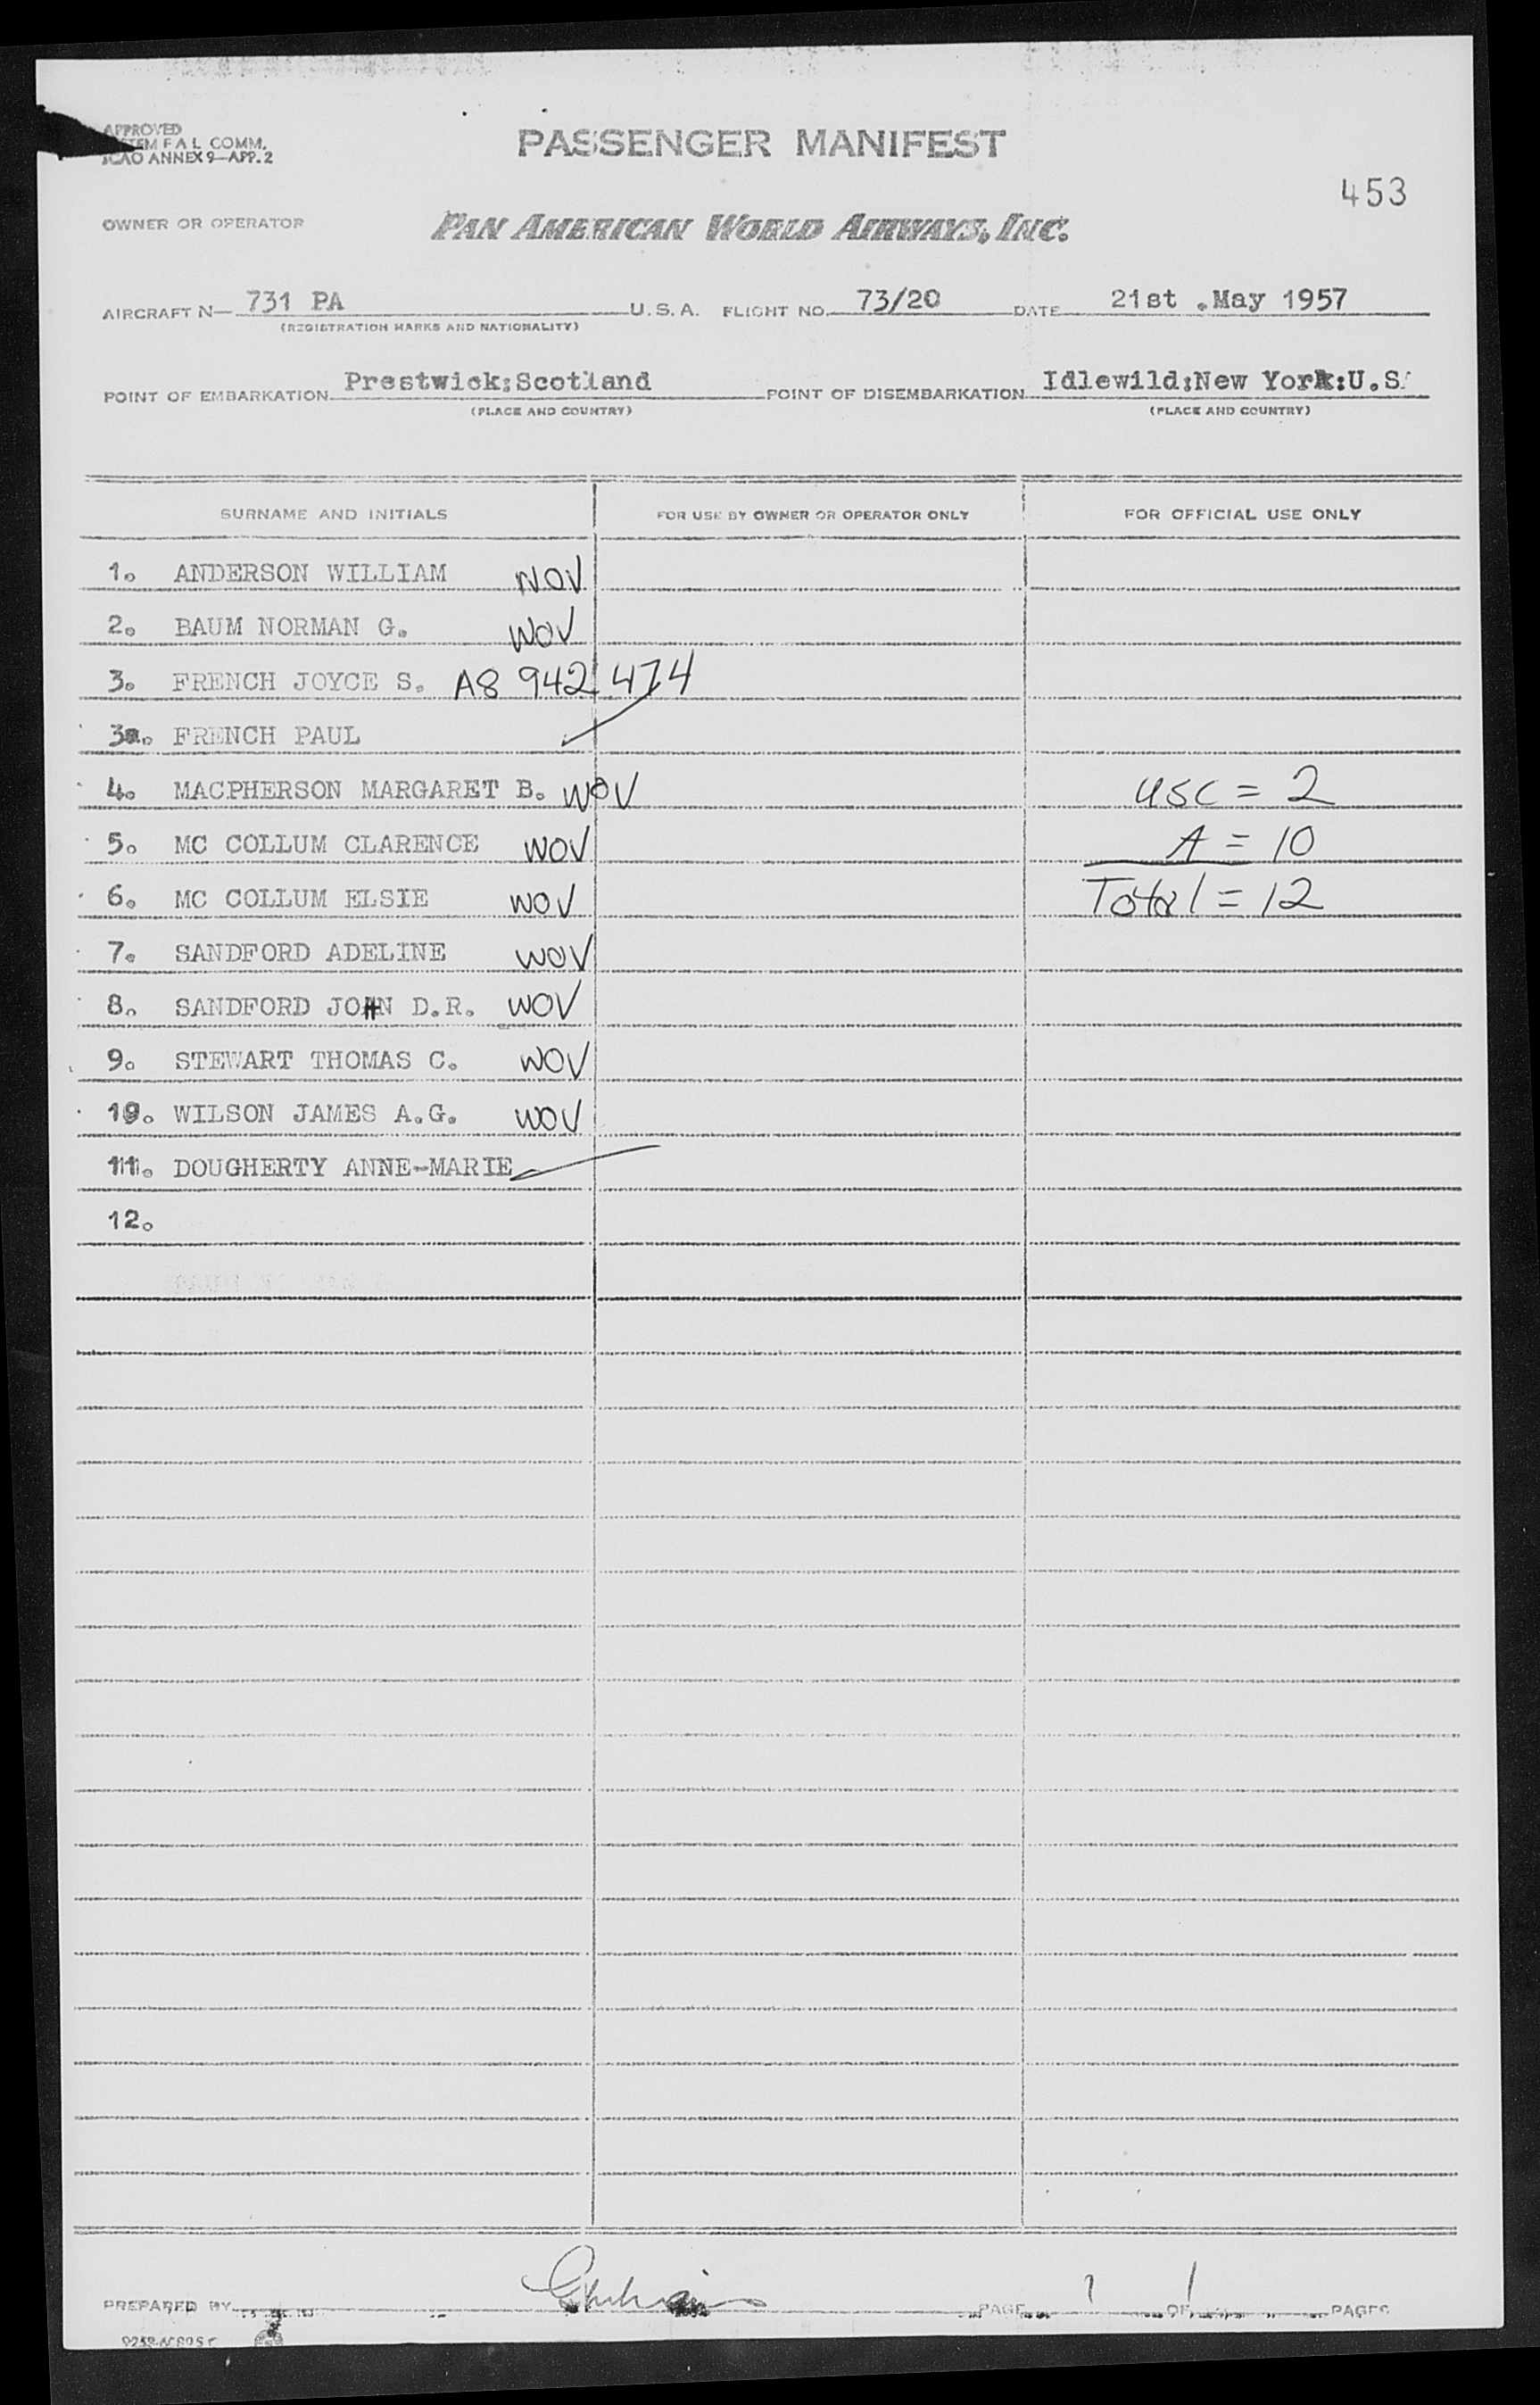 APPROVED
F A L COMM.
ICAO ANNEX 9—APP. 2
PASSENGER MANIFEST
453
OWNER OR OPERATOR PAN AMERICAN WORLD AIRWAYS, INC.
AIRCRAFT N— 731 PA U.S.A. FLIGHT NO. 73/20 DATE 21st .May 1957
(REGISTRATION MARKS AND NATIONALITY)
POINT OF EMBARKATION Prestwick:Scotland POINT OF DISEMBARKATION Idlewild:New York:U.S.
(PLACE AND COUNTRY) (PLACE AND COUNTRY)
SURNAME AND INITIALS FOR USE BY OWNER OR OPERATOR ONLY FOR OFFICIAL USE ONLY
1. ANDERSON WILLIAM WOV
2. BAUM NORMAN G. WOV
3. FRENCH JOYCE S. A8 942 474
3a. FRENCH PAUL
4. MACPHERSON MARGARET B. WOV USC = 2
5. MC COLLUM CLARENCE WOV A = 10
6. MC COLLUM ELSIE WOV Total = 12
7. SANDFORD ADELINE WOV
8. SANDFORD JOHN D.R. WOV
9. STEWART THOMAS C. WOV
10. WILSON JAMES A.G. WOV
11. DOUGHERTY ANNE-MARIE
12.
PREPARED BY PAGE 1 OF 1 PAGES